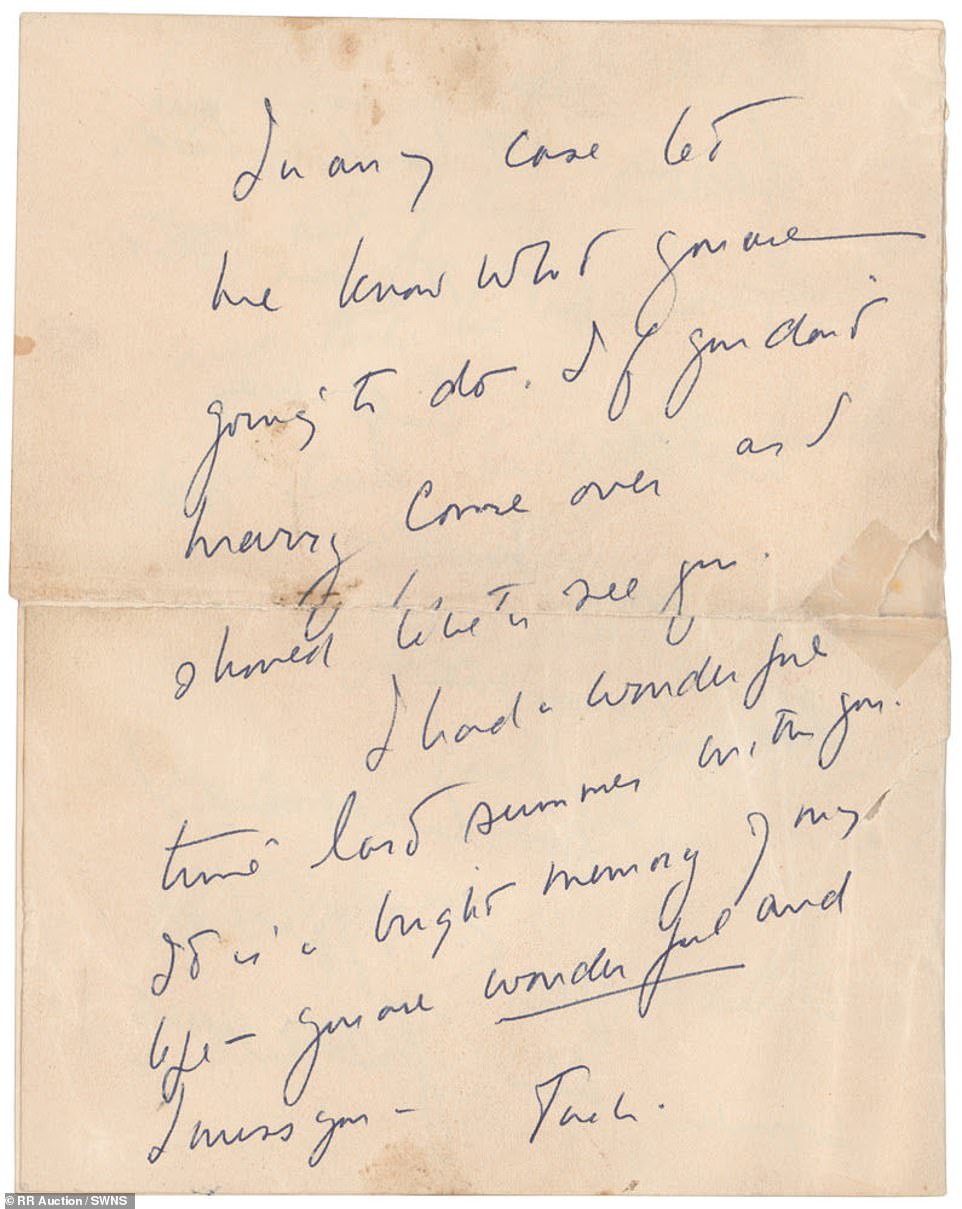 In any case let
me know what you are
going to do. If you don't
marry come over as I
should like to see you.
I had a wonderful
time last summer with you.
It is a bright memory of my
life - you are wonderful and
I miss you - Jack.
© RR Auction / SWNS